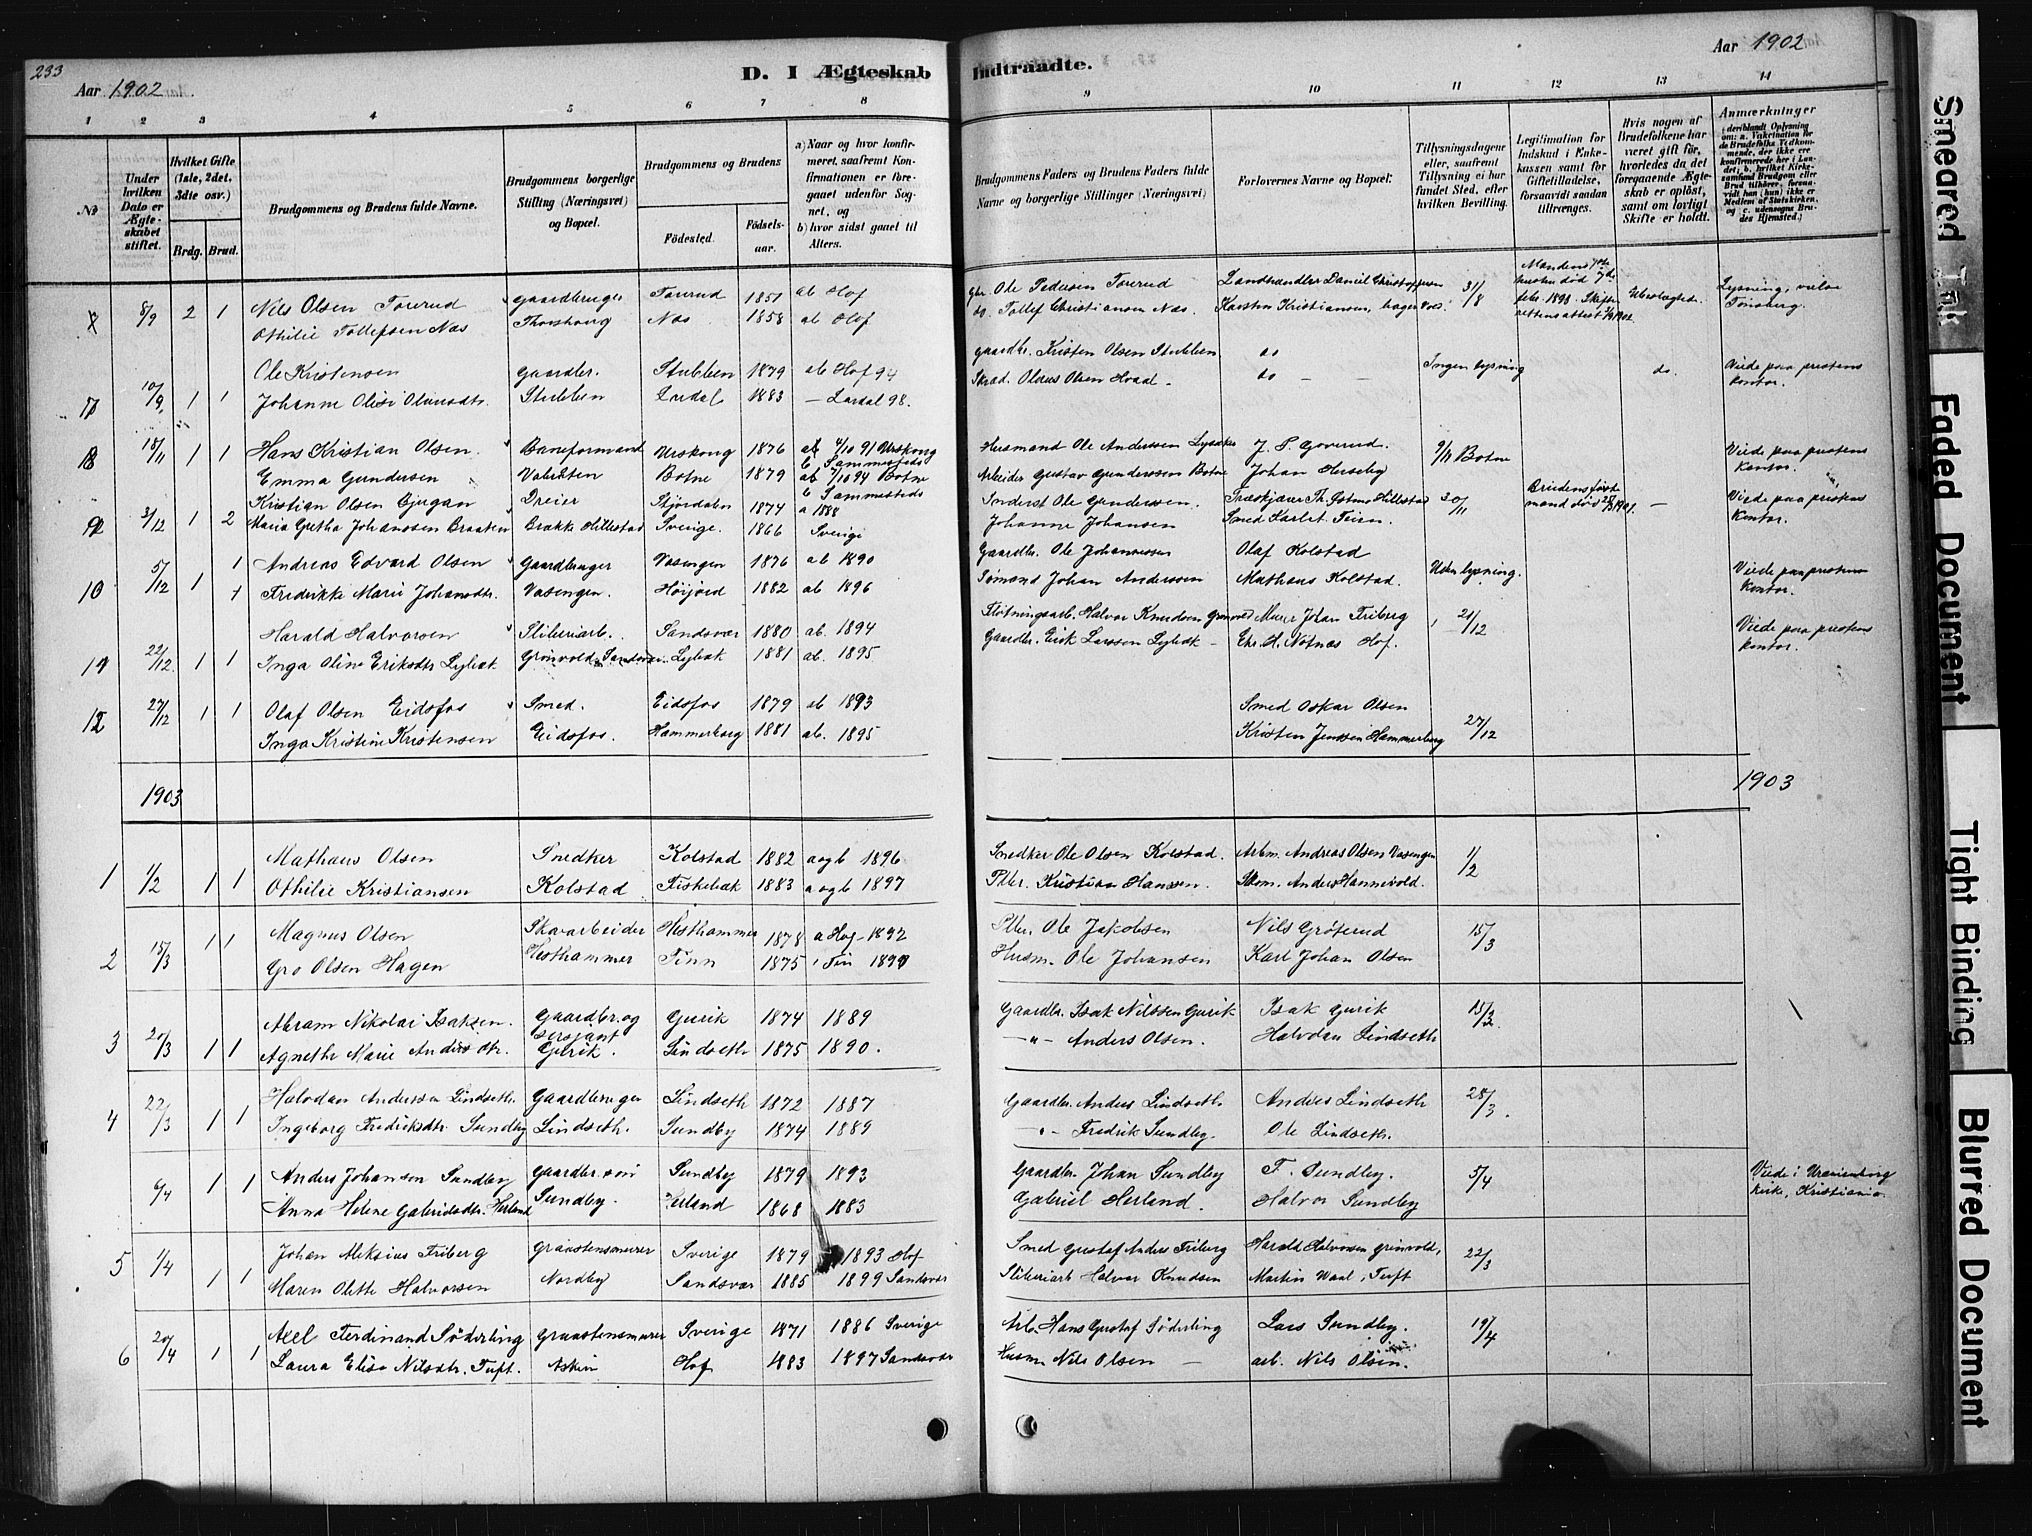 233
Aar 1902
D. I Ægteskab
Indtraadte.
Aar 1902
1 2 3 4 5 6 7 8
9 10 11 12 13 14
No
Under hvilken Dato er Ægteskabet stiftet.
Hvilket Gifte (1ste, 2det, 3dte osv.)
Brdg. Brud.
Brudgommens og Brudens fulde Navne.
Brudgommens borgerlige Stilling (Næringsvei) og Bopæl.
Brudgommens og Brudens
Födested.
Födsels-aar.
a) Naar og hvor konfirmeret, saafremt Konfirmationen er foregaaet udenfor Sognet, og
b) hvor sidst gaaet til Alters.
Brudgommens Faders og Brudens Faders fulde Navne og borgerlige Stillinger (Næringsvei)
Forlovernes Navne og Bopæl.
Tillysningsdagene eller, saafremt Tillysning ei har fundet Sted, efter hvilken Bevilling.
Legitimation for Indskud i Enkekassen samt for Giftetilladelse, forsaavidt saadan tiltrænges.
Hvis nogen af Brudefolkene har været gift før, hvorledes da det foregaaende Ægteskab er oplöst, samt om lovligt Skifte er holdt.
Anmærkninger
8/9 2 1 Nils Olsen Tørerud gaardbruger Tørerud 1851 ab Hof Gbr. Ole Pedersen Tørerud Landhandler Daniel Christoffersen 31/8
Othilie Tollefsen Næs Thorshaug Næs 1858 ab Hof do. Tollef Christiansen Næs. Karsten Kristiansen,
Ole Kristensen gaardbr. Stubben 1879 ab Hof 94 gaardbr. Kristen Olsen Stubben do Ingen lysning do. Viede paa prestens kontor.
10/9 1 1 Johanne Olise Olausdtr. Stubben Lardal 1883 - Lardal 98. Olaus Olsen do
8 18/11 1 1 Hans Kristian Olsen. Baneformand Urskoug 1876 4/10 91 Urskoug Ole Anderssen J. S. Goverud. 9/11 Botne Viede paa prestens kontor.
Emma Gundersen Botne 1879 7/10 94 Botne Arbeider Gustav Gunderssen Botne Johan Herseby
b Sammesteds
3/12 1 2 Kristian Olsen Dreier Stjørdalen 1874 a 1888 Ole Gunderssen. 30/11 Viede paa prestens kontor.
Maria Gretha Johanssen Braaten Brække Hillestad Sverige. 1866 Sverige Johanne Johansen Smed Karl
10 5/12 1 1 Andreas Edvard Olsen Gaardbruger Vasengen 1876 ab 1890 Gaardbr. Ole Johannessen Olaf Kolstad Uden lysning. Viede paa prestens kontor.
Fredrikke Marie Johansdtr. Vasengen. Høijord 1882 ab 1896 Sømand Johan Anderssen Mathæus Kolstad.
11 22/12 1 1 Harald Halvorsen Sliberiarb. Sandsvær 1880 ab. 1894 Fløtningsarb. Halvor Knudsen Grønvold Murer Johan Friberg 21/12 Viede paa prestens kontor.
Inga Oline Eriksdtr Lybæk Grønvold Lybæk 1881 ab. 1895 Gaardbr. Erik Larssen Lybæk Chr. H. Nøtnæs Hof.
12 27/12 1 1 Olaf Olsen Eidsfos Smed. Eidsfos 1879 ab 1893 Smed Oskar Olsen 27/12
Inga Kristine Kristensen Eidsfos. Hammerborg 1881 ab. 1895 Kristen Jenssen Hammerborg
1903
1903
1 1/2 1 1 Mathæus Olsen Snedker Kolstad 1882 a og b 1896 Snedker Ole Olsen Kolstad. Arbm. Andreas Olsen Vasengen 1/2
Othilie Kristiansen Kolstad Fiskebæk 1883 a og b 1897 Pller. Kristian Hanssen. Skom. Anders Hannevold.
2 15/3 1 1 Magnus Olsen Skovarbeider Hesthammer 1878 a Hof 1892 Pller. Ole Jakobsen Nils Grøterud 15/3
Gro Olsen Hagen Hesthammer Tinn 1875 Husm. Ole Johansen Karl Johan Olsen
3 20/3 1 1 Abram Nikolai Isaksen. Gaardbr. og sersjant Gurik 1874 1889 Gaardbr. Isak Nilssen Gurik Isak Gurik 15/3
Agnethe Marie Andersdtr. Gurik. Lindseth 1875 1890. -"- Anders Olsen. Halvdan Lindseth
4 22/3 1 1 Halvdan Anderssen Lindseth Gaardbruger Lindseth 1872 1887 Gaardbr. Anders Lindseth. Anders Lindseth 28/3.
Ingeborg Fredriksdtr. Sundby Lindseth. Sundby 1874 1889 -"- Fredrik Sundby. Ole Lindseth.
6/4 1 1 Anders Johansen Sundby Gaardbr. søn Sundby 1879 1893 Gaardbr. Johan Sundby F. Sundby. 5/4 Viede i Uranienborg kirke, Kristiania
Anna Helene Gabrielsdtr. Herland Sundby. Herland 1868 1883 Gabriel Herland. Halvor Sundby
5 1/4 1 1 Johan Aleksius Friberg Graastensmurer Sverige 1879 1893 Hof Smed Gustaf Anders Friberg Harald Halvorsen Grønvold, 22/3
Maren Olette Halvorsen Nordby Sandsvær 1885 1899 Sandsvær Sliberiarb Halvor Knudsen Martin Waal, Tuft
6 20/4 1 1 Axel Ferdinand Söderling Graastensmurer Sverige 1871 1886 Sverige Arb. Hans Gustaf Söderling Lars Sundby. 19/4
Laura Elise Nilsdtr. Tuft. Askim Hof 1883 1897 Sandsvær Husm Nils Olsen - arb. Nils Olsen.
Smeared Ink
Faded Document
Tight Binding
Blurred Document